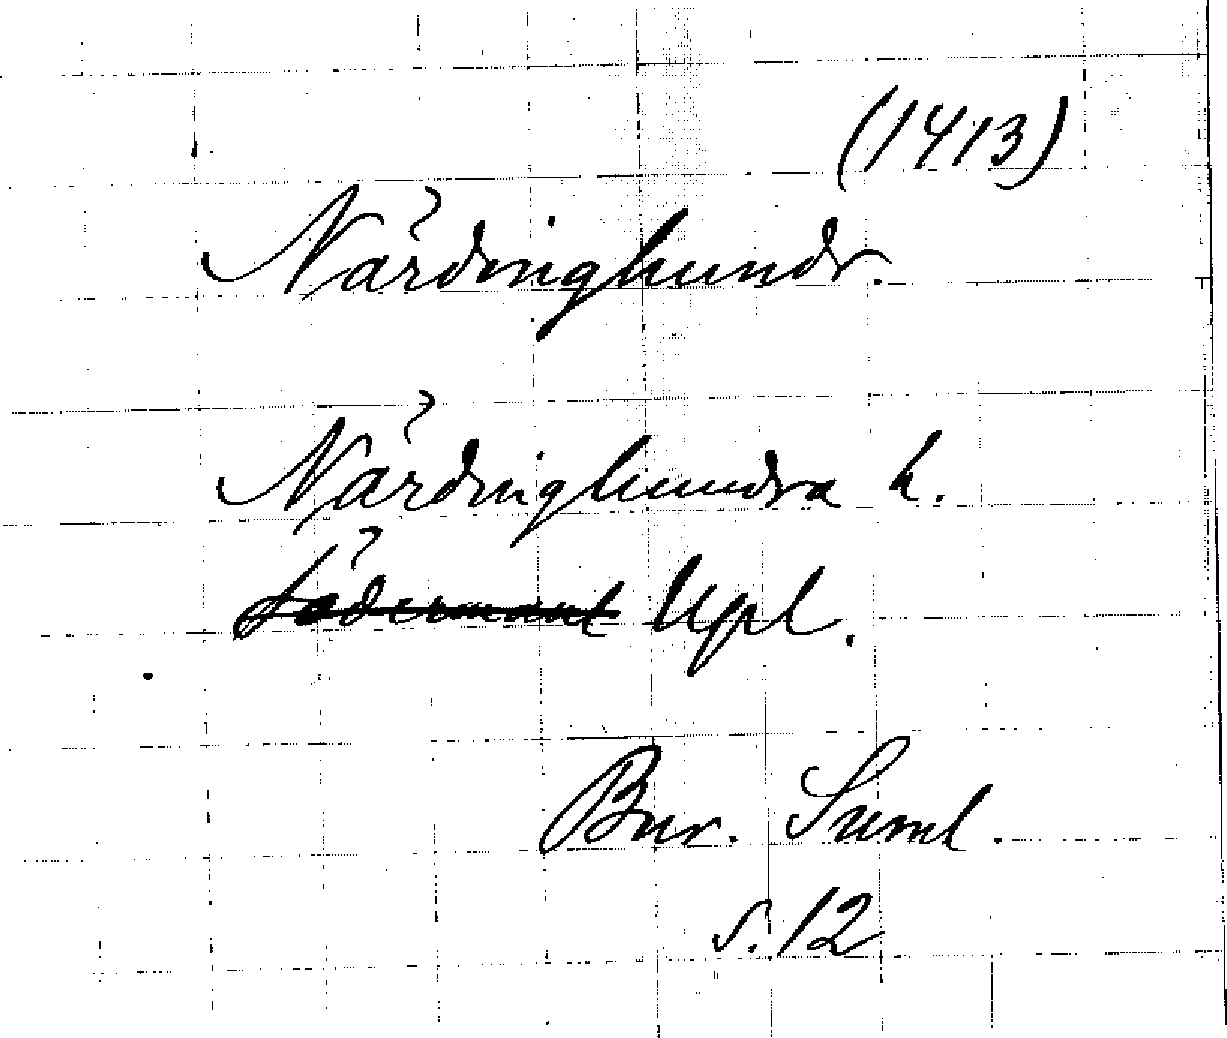 (1413)
Närdinghundr.
Närdinghundra h.
Södermanl Upl.
Bur. Suml.
s. 12